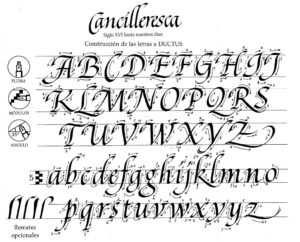 Cancilleresca
Siglo XVI hasta nuestros días
Construcción de las letras o DUCTUS
PLUMA
ABCDEFGHIJ
MÓDULOS
KLMNOPQRS
ÁNGULO
TUVWXYZ
5
abcdefgghijklmno
pqrstuvwxyyz
Remates
opcionales